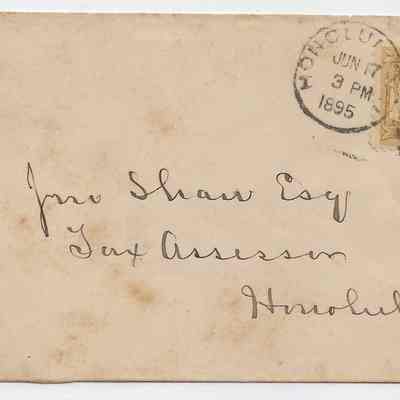 HONOLU
JUN 17
3 PM
1895
Jno Shaw Esq
Tax Assessor
Honolul